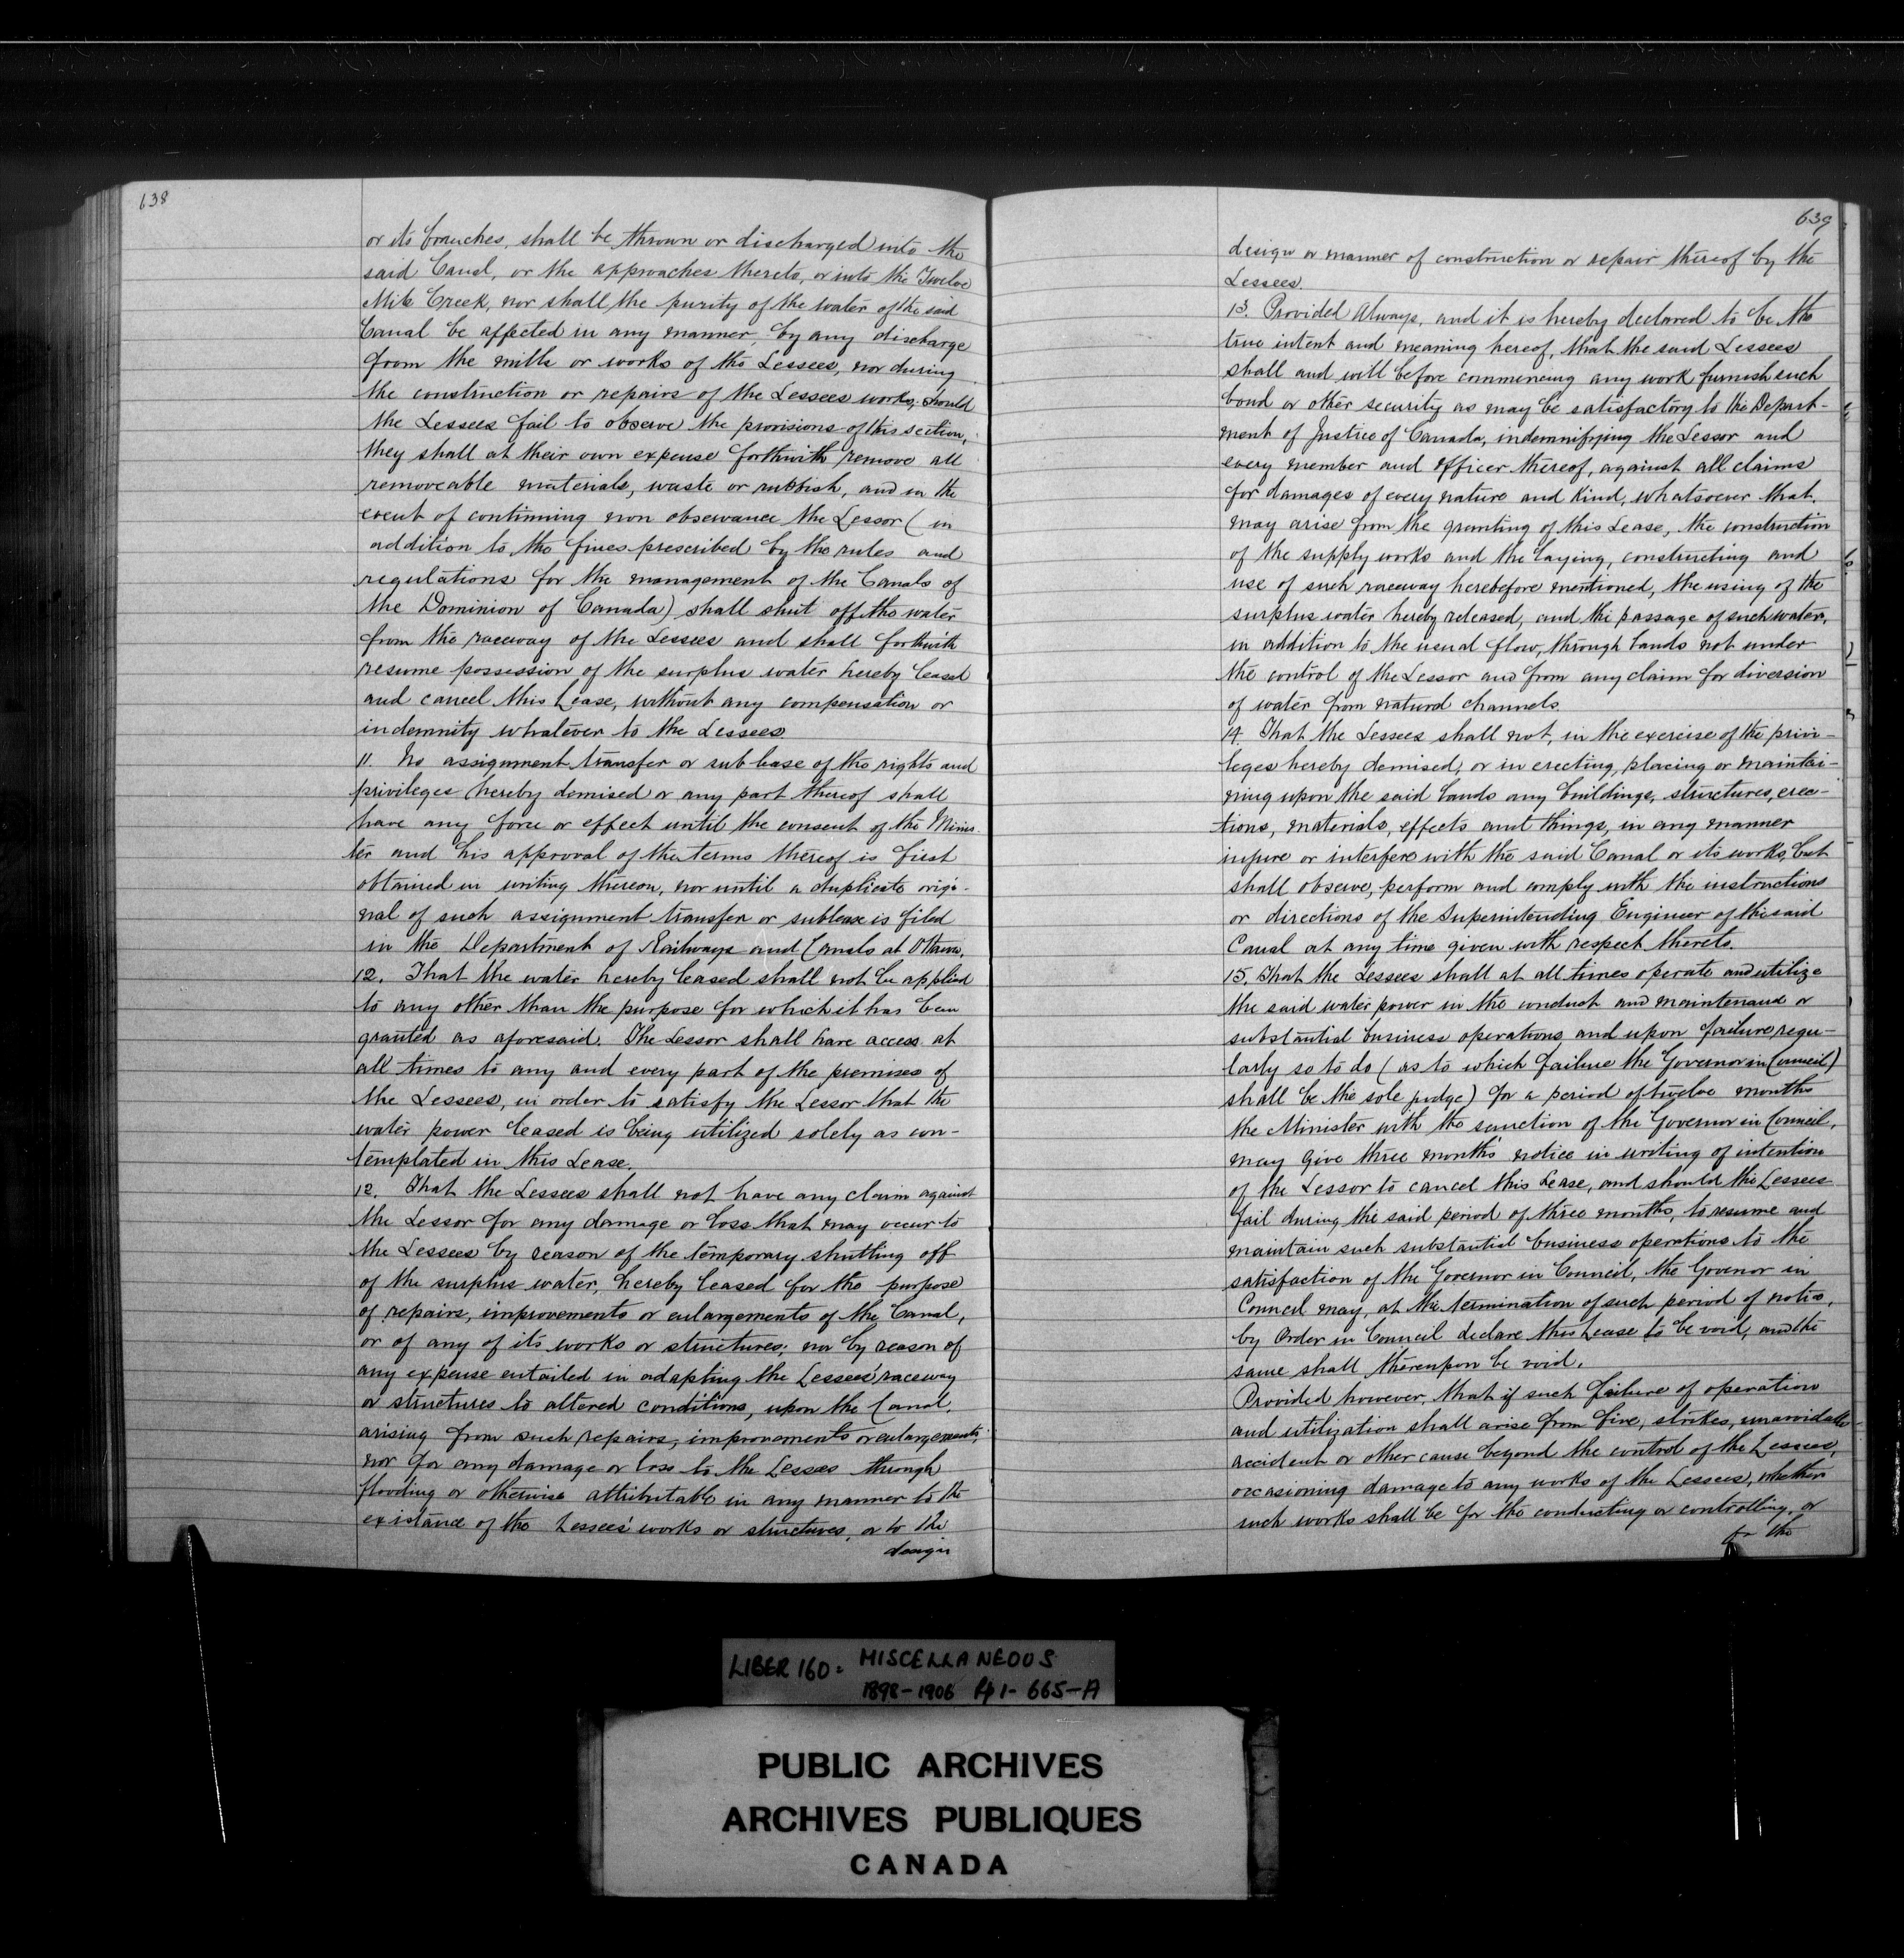 638
or its branches, shall be thrown or discharged into the
said Canal, or the approaches thereto, or into the Twelve
Mile Creek, nor shall the purity of the water of the said
Canal be affected in any manner, by any discharge
from the mills or works of the Lessees, nor during
the construction or repairs of the Lessees works; should
the Lessees fail to observe the provisions of this section,
they shall at their own expense forthwith remove all
removeable materials, waste or rubbish, and in the
event of continuing non observance the Lessor (in
addition to the fines prescribed by the rules and
regulations for the management of the Canals of
the Dominion of Canada) shall shut off the water
from the raceway of the Lessees and shall forthwith
resume possession of the surplus water hereby leased
and cancel this Lease, without any compensation or
indemnity whatever to the Lessees
11. No assignment transfer or sub lease of the rights and
privileges hereby demised or any part thereof shall
have any force or effect until the consent of the Minis-
ter and his approval of the terms thereof is first
obtained in writing thereon, nor until a duplicate origi-
nal of such assignment transfer or sublease is filed
in the Department of Railways and Canals at Ottawa.
12. That the water hereby leased shall not be applied
to any other than the purpose for which it has been
granted as aforesaid. The Lessor shall have access at
all times to any and every part of the premises of
the Lessees, in order to satisfy the Lessor that the
water power leased is being utilized solely as con-
templated in this Lease.
12. That the Lessees shall not have any claim against
the Lessor for any damage or loss that may occur to
the Lessees by reason of the temporary shutting off
of the surplus water, hereby leased for the purpose
of repairs, improvements or enlargements of the Canal,
or of any of its works or structures; nor by reason of
any expense entailed in adapting the Lessees' raceway
or structures to altered conditions, upon the Canal,
arising from such repairs, improvements or enlargements,
nor for any damage or loss to the Lessees through
flooding or otherwise attributable in any manner to the
existance of the Lessees' works or structures, or to the
design
639
design or manner of construction or repair thereof by the
Lessees.
13. Provided Always, and it is hereby declared to be the
true intent and meaning hereof, that the said Lessees
shall and will before commencing any work furnish such
bond or other security as may be satisfactory to the Depart-
ment of Justice of Canada, indemnifying the Lessor and
every member and officer thereof, against all claims
for damages of every nature and kind, whatsoever that
may arise from the granting of this Lease, the construction
of the supply works and the laying, constructing and
use of such raceway herebefore mentioned, the using of the
surplus water hereby released, and the passage of such water,
in addition to the usual flow, through lands not under
the control of the Lessor and from any claim for diversion
of water from natural channels.
14. That the Lessees shall not, in the exercise of the privi-
leges hereby demised, or in erecting, placing or maintai-
ning upon the said lands any buildings, structures, erec-
tions, materials, effects and things, in any manner
injure or interfere with the said Canal or its works, but
shall observe, perform and comply with the instructions
or directions of the Superintending Engineer of the said
Canal at any time given with respect thereto.
15. That the Lessees shall at all times operate and utilize
the said water power in the conduct and maintenance or
substantial business operations, and upon failure regu-
larly so to do (as to which failure the Governor in Council)
shall be the sole judge) for a period of twelve months
the Minister with the sanction of the Governor in Council,
may give three months' notice in writing of intention
of the Lessor to cancel this Lease, and should the Lessees
fail during the said period of three months, to resume and
maintain such substantial business operations to the
satisfaction of the Governor in Council, the Govenor in
Council may, at the termination of such period of notice,
by Order in Council declare this Lease to be void, and the
same shall thereupon be void.
Provided however, that if such failure of operation
and utilization shall arise from fire, strikes, unavoidable
accident or other cause beyond the control of the Lessees,
occasioning damage to any works of the Lessees, whether
such works shall be for the conducting or controlling, or
for the
LIBER 160: MISCELLANEOUS
1898-1906 Pp 1-665-A
PUBLIC ARCHIVES
ARCHIVES PUBLIQUES
CANADA